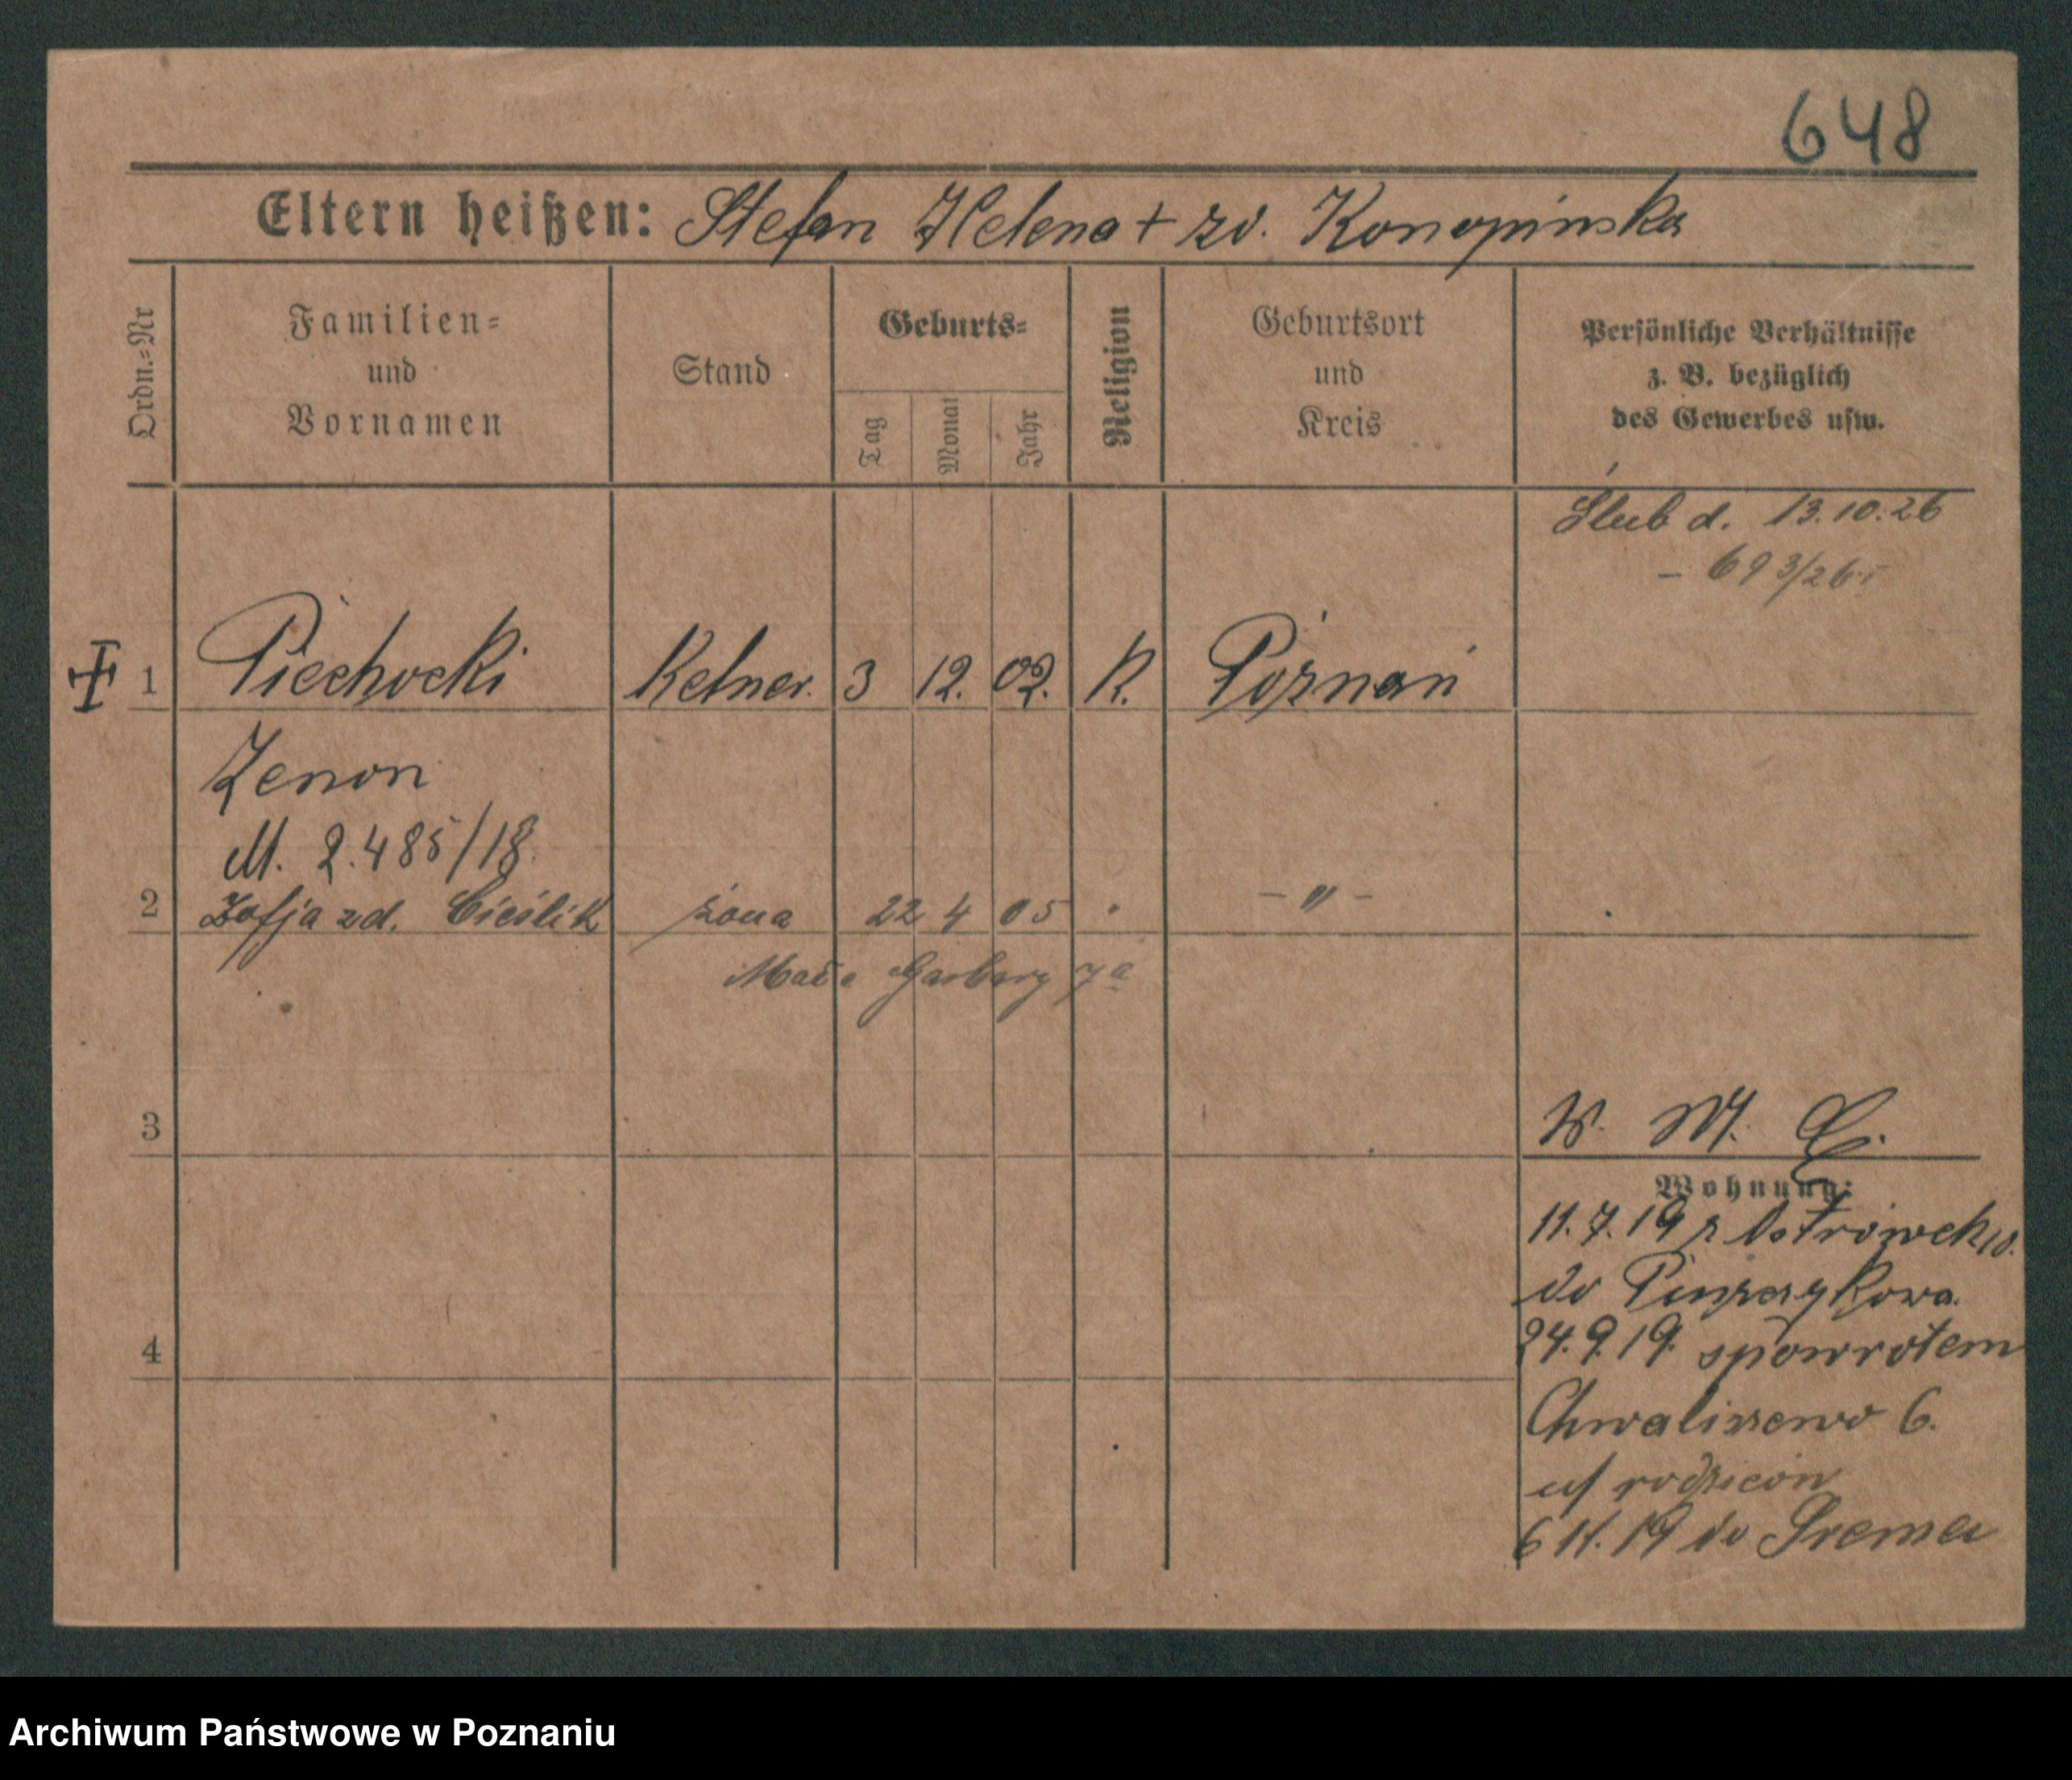 648
Eltern heißen: Stefan Helena + zd. Konopinska
Ordn.=Nr
Familien=
und
Vornamen
Stand
Geburts=
Tag
Monat
Jahr
Religion
Geburtsort
und
Kreis
Persönliche Verhältnisse
z. B. bezüglich
des Gewerbes usw.
Ślub d. 13.10.26
– 693/26
1 Piechocki Kelner. 3 12. 02. K. Poznań
Zenon
M. 2.485/18.
2 Zofja zd. Cieślik żona 22 4 05 – " –
Garbary 7a
3
W. M.
Wohnung:
11.7.19 z Ostrówek
do
24.9.19. spowrotem
4
Chwaliszewo 6.
u/ rodziców
6 11. 19 do Śremu
Archiwum Państwowe w Poznaniu